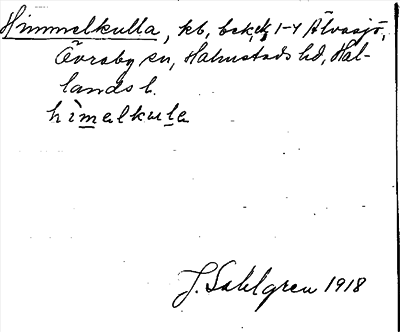 Himmelkulla, kb, bek, 1-4 Älvasjö,
Övraby sn, Halmstads hd, Hal-
lands l.
himelkula
J. Sahlgren 1918